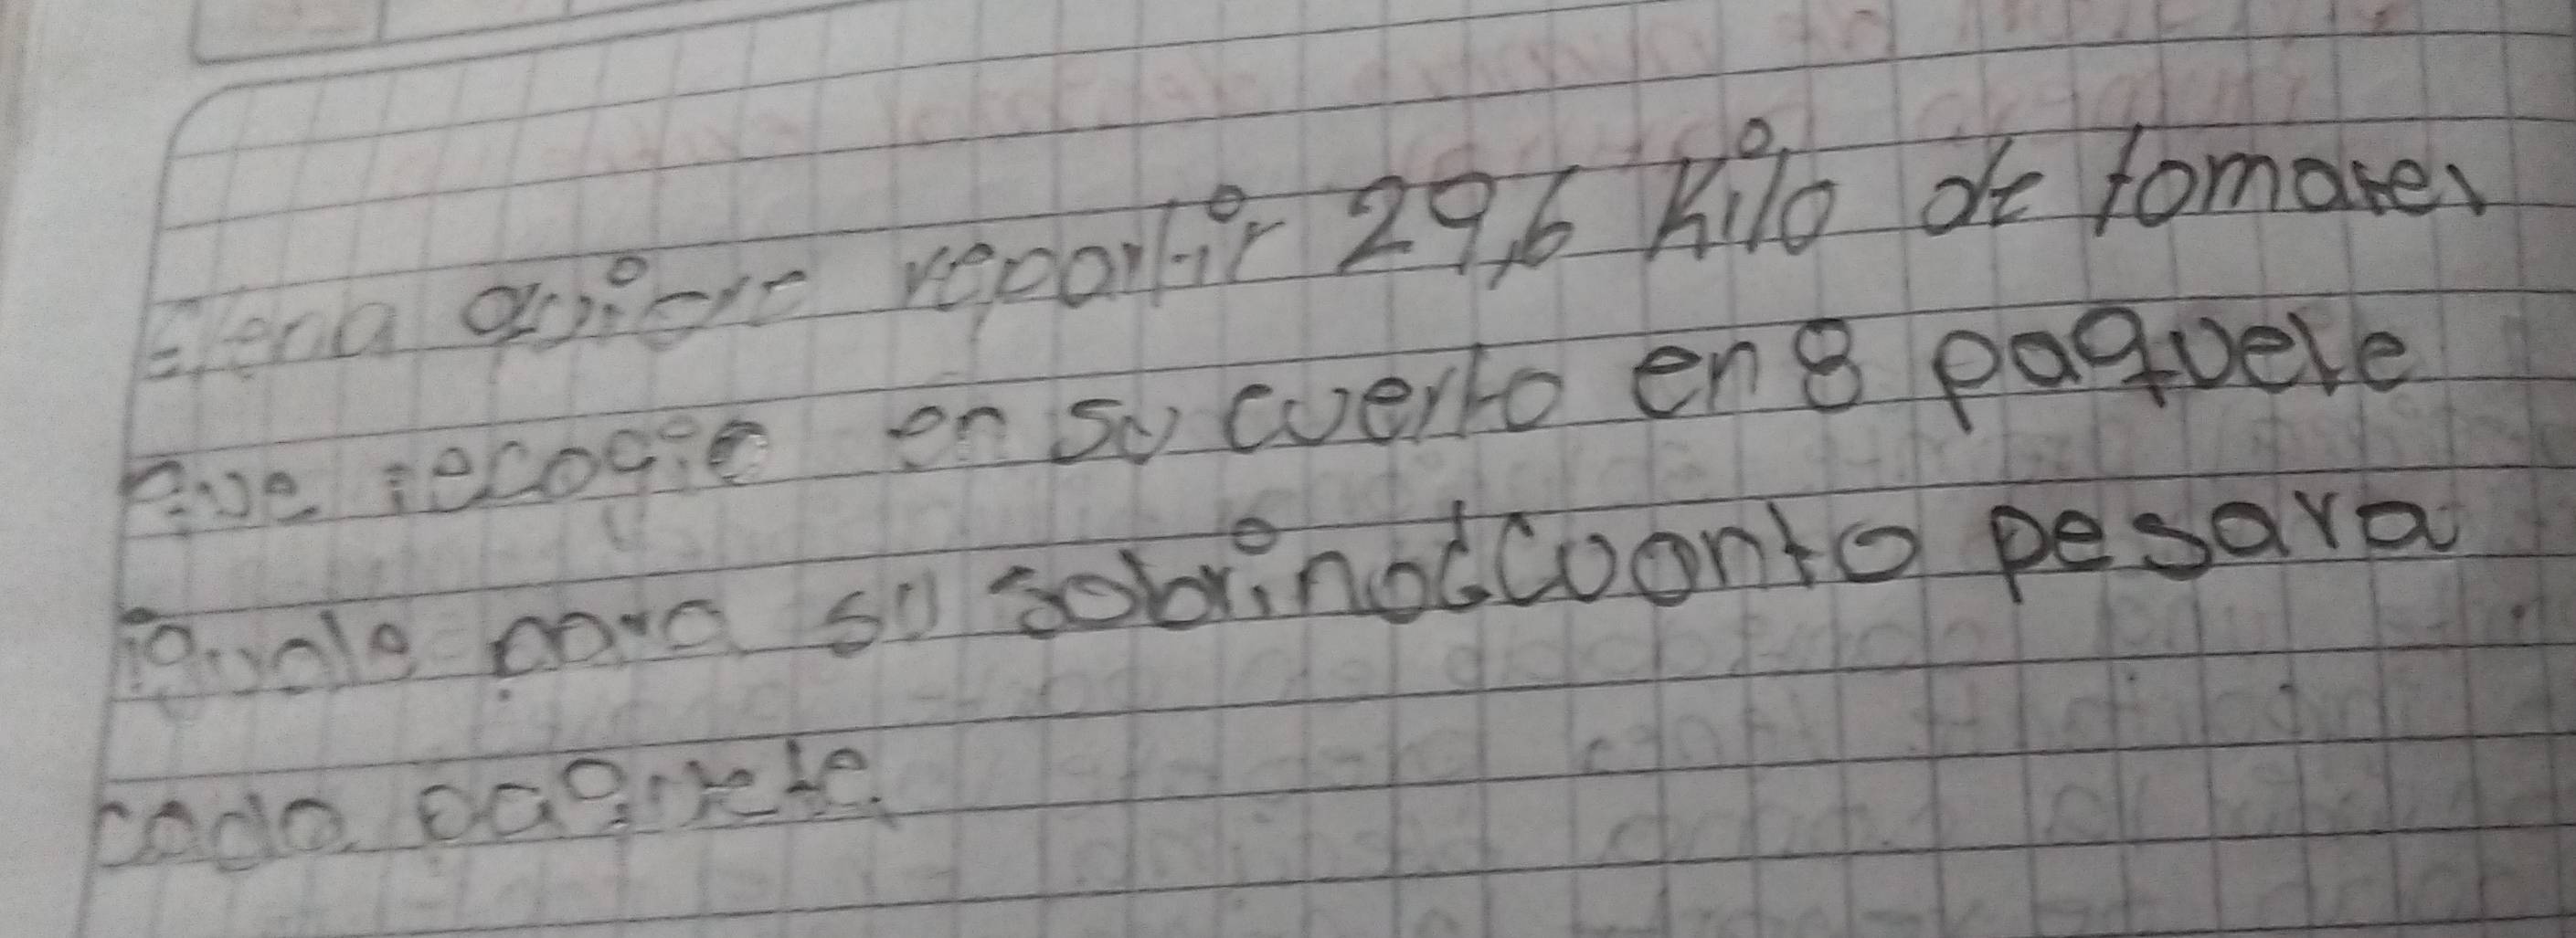 Elena quiere repartir 29,6 Kilo de tomates
que recogio en su cuerto en 8 paquete
iguale para su sobrino¿Cuanto pesara
cada paquete